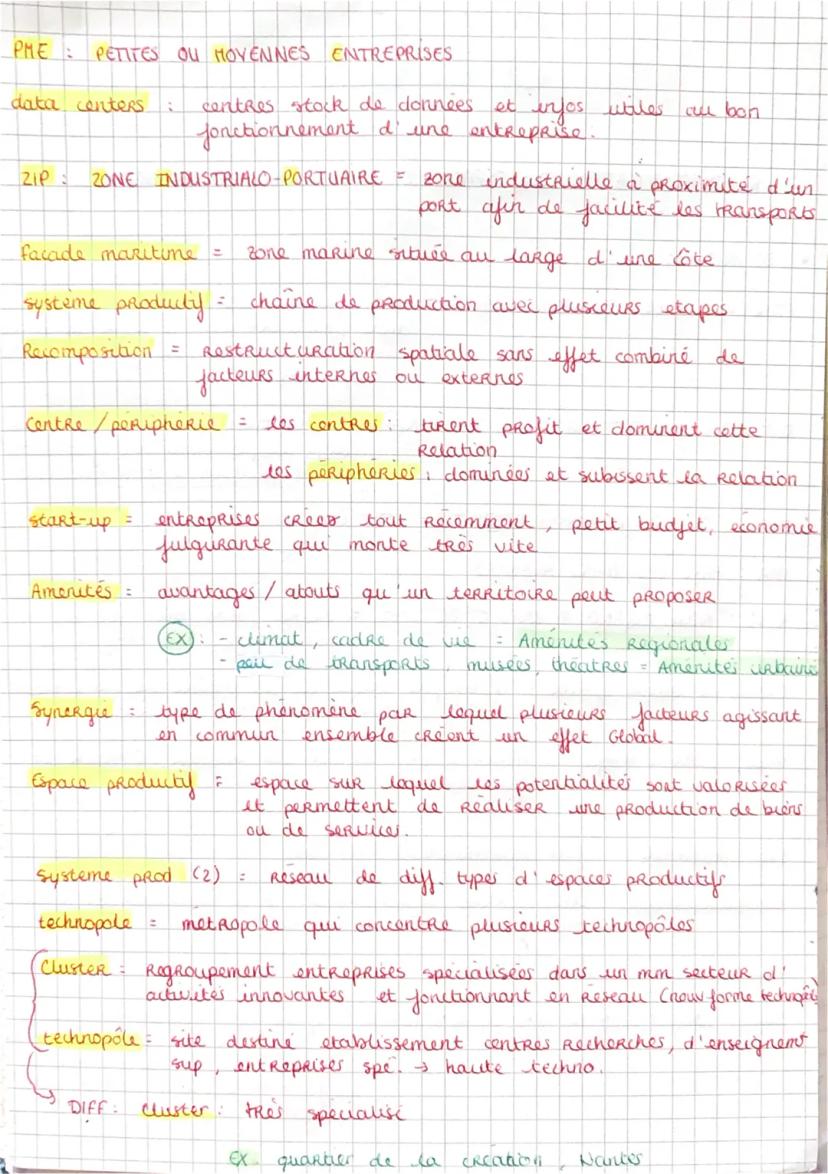 PME : PETITES OU MOYENNES ENTREPRISES
data centers : centres stock de données et infos utiles au bon
fonctionnement d'une entreprise.
ZIP : ZONE INDUSTRIALO-PORTUAIRE = zone industrielle à proximité d'un
port afin de facilité les transports
facade maritime = zone marine située au large d'une côte
système productif = chaîne de production avec plusieurs etapes
Recomposition = Restructuration spatiale sans effet combiné de
facteurs internes ou externes
Centre / périphérie = les centres : tirent profit et dominent cette
Relation
les périphéries : dominées et subissent la Relation
start-up = entreprises créés tout récemment, petit budjet, economie
fulgurante qui monte très vite
Amenités : avantages / atouts qu'un territoire peut proposer
EX : - climat, cadre de vie = Aménités Regionales
- peu de transports, musées, théatres = Aménités urbaine
Synergie : type de phénomène par lequel plusieurs facteurs agissant
en commun ensemble créent un effet Global.
Espace productif = espace sur lequel les potentialités sont valorisées
et permettent de réaliser une production de biens
ou de services.
systeme prod (2) = réseau de diff. types d'espaces productifs
technopole = métropole qui concentre plusieurs technopôles
Cluster : Regroupement entreprises spécialisées dans un mm secteur d'
activités innovantes et fonctionnant en réseau (nouv forme technopôle)
technopôle = site destiné etablissement centres recherches, d'enseignemt
sup, entreprises spé. → haute techno.
DIFF : cluster : très spécialisé
EX quartier de la création, Nantes